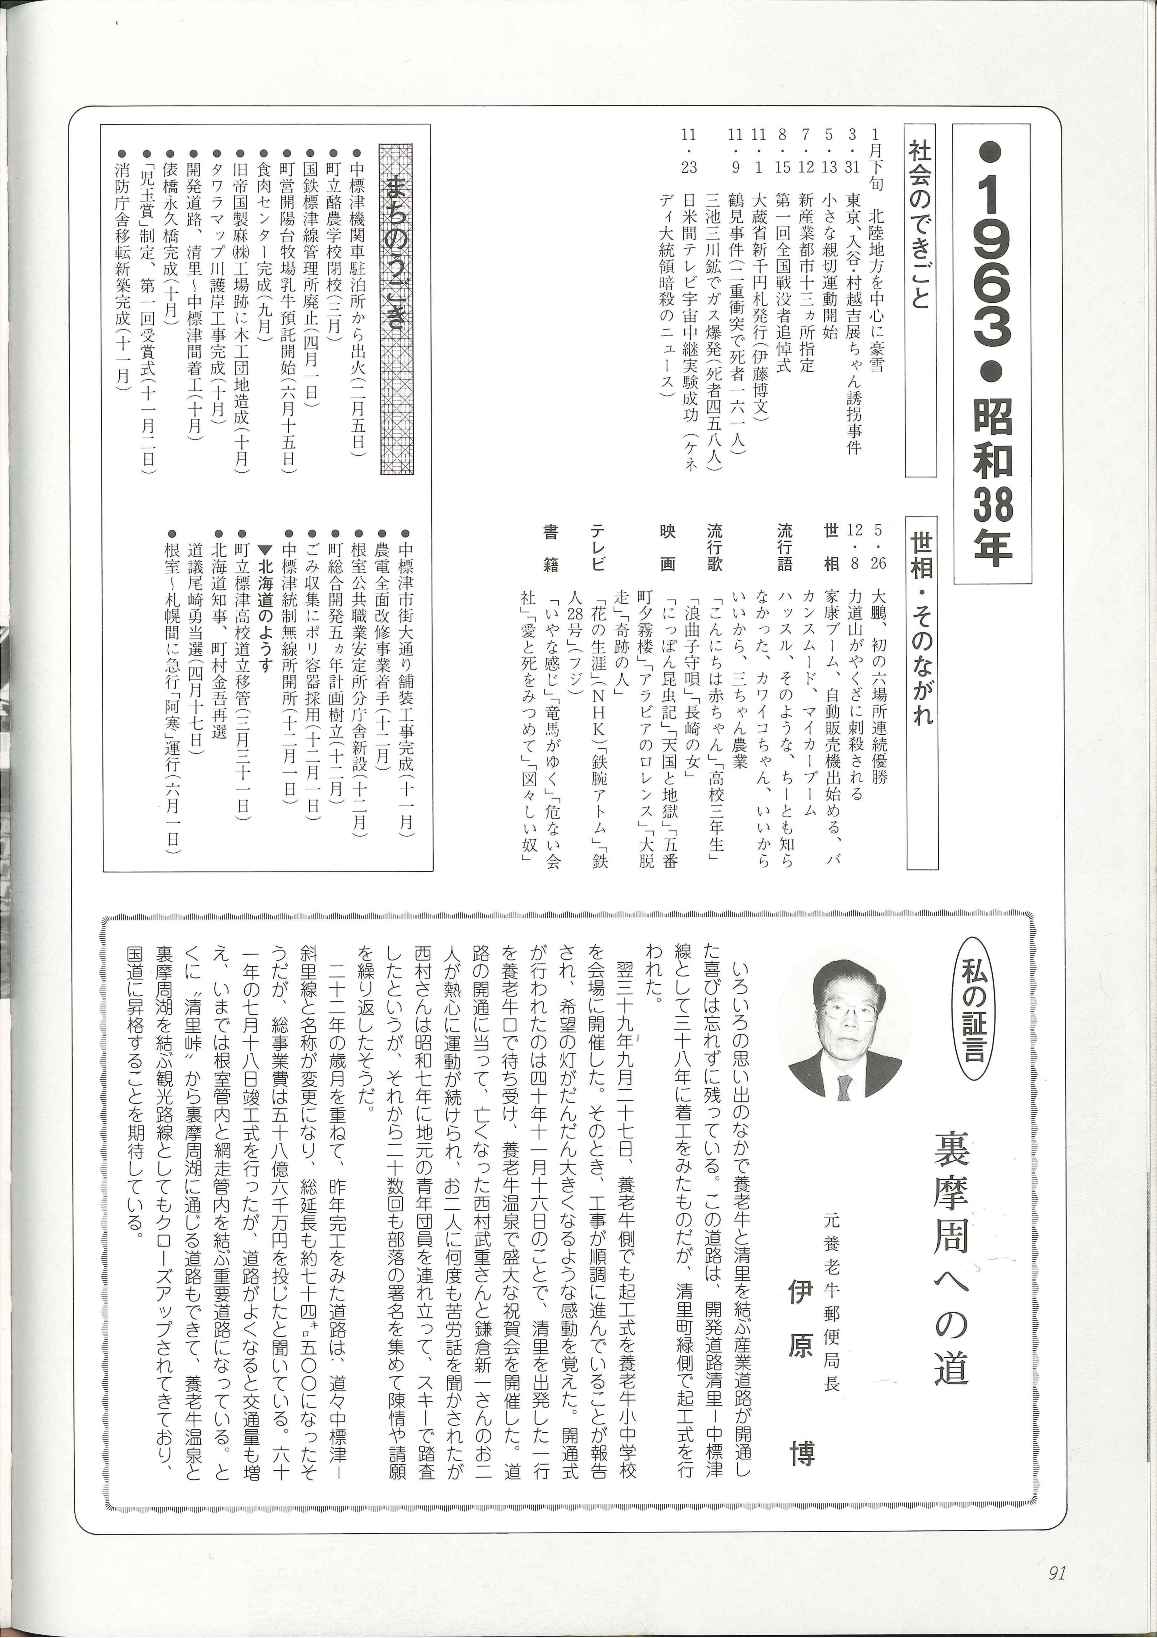 ●1963●昭和38年
社会のできごと
1月下旬　北陸地方を中心に豪雪
3・31　東京、入谷・村越吉展ちゃん誘拐事件
5・13　小さな親切運動開始
7・12　新産業都市十三ヵ所指定
8・15　第一回全国戦没者追悼式
11・1　大蔵省新千円札発行(伊藤博文)
11・9　鶴見事件(二重衝突で死者一六一人)
三池三川鉱でガス爆発(死者四五八人)
11・23　日米間テレビ宇宙中継実験成功(ケネ
ディ大統領暗殺のニュース)
世相・そのながれ
5・26　大鵬、初の六場所連続優勝
12・8　力道山がやくざに刺殺される
世相　家康ブーム、自動販売機出始める、バ
カンスムード、マイカーブーム
流行語　ハッスル、そのような、ちーとも知ら
なかった、カワイコちゃん、いいから
いいから、三ちゃん農業
流行歌　「こんにちは赤ちゃん」「高校三年生」
「浪曲子守唄」「長崎の女」
映画　「にっぽん昆虫記」「天国と地獄」「五番
町夕霧楼」「アラビアのロレンス」「大脱
走」「奇跡の人」
テレビ　「花の生涯」(NHK)「鉄腕アトム」「鉄
人28号」(フジ)
書籍　「いやな感じ」「竜馬がゆく」「危ない会
社」「愛と死をみつめて」「図々しい奴」
まちのうごき
●中標津機関車駐泊所から出火(二月五日)
●町立酪農学校閉校(三月)
●国鉄標津線管理所廃止(四月一日)
●町営開陽台牧場乳牛預託開始(六月十五日)
●食肉センター完成(九月)
●旧帝国製麻㈱工場跡に木工団地造成(十月)
●タワラマップ川護岸工事完成(十月)
●開発道路、清里〜中標津間着工(十月)
●俵橋永久橋完成(十月)
●「児玉賞」制定、第一回受賞式(十一月二日)
●消防庁舎移転新築完成(十一月)
●中標津市街大通り舗装工事完成(十一月)
●農電全面改修事業着手(十二月)
●根室公共職業安定所分庁舎新設(十二月)
●町総合開発五ヵ年計画樹立(十二月)
●ごみ収集にポリ容器採用(十二月一日)
●中標津統制無線所開所(十二月一日)
▼北海道のようす
●町立標津高校道立移管(三月三十一日)
●北海道知事、町村金吾再選
道議尾崎勇当選(四月十七日)
●根室〜札幌間に急行「阿寒」運行(六月一日)
私の証言
裏摩周への道
元養老牛郵便局長
伊原　博
いろいろの思い出のなかで養老牛と清里を結ぶ産業道路が開通し
た喜びは忘れずに残っている。この道路は、開発道路清里ー中標津
線として三十八年に着工をみたものだが、清里町緑側で起工式を行
われた。
翌三十九年九月二十七日、養老牛側でも起工式を養老牛小中学校
を会場に開催した。そのとき、工事が順調に進んでいることが報告
され、希望の灯がだんだん大きくなるような感動を覚えた。開通式
が行われたのは四十年十一月十六日のことで、清里を出発した一行
を養老牛口で待ち受け、養老牛温泉で盛大な祝賀会を開催した。道
路の開通に当って、亡くなった西村武重さんと鎌倉新一さんのお二
人が熱心に運動が続けられ、お二人に何度も苦労話を聞かされたが
西村さんは昭和七年に地元の青年団員を連れ立って、スキーで踏査
したというが、それから二十数回も部落の署名を集めて陳情や請願
を繰り返したそうだ。
二十二年の歳月を重ねて、昨年完工をみた道路は、道々中標津ー
斜里線と名称が変更になり、総延長も約七十四㌔五〇〇になったそ
うだが、総事業費は五十八億六千万円を投じたと聞いている。六十
一年の七月十八日竣工式を行ったが、道路がよくなると交通量も増
え、いまでは根室管内と網走管内を結ぶ重要道路になっている。と
くに〝清里峠〟から裏摩周湖に通じる道路もできて、養老牛温泉と
裏摩周湖を結ぶ観光路線としてもクローズアップされてきており、
国道に昇格することを期待している。
91